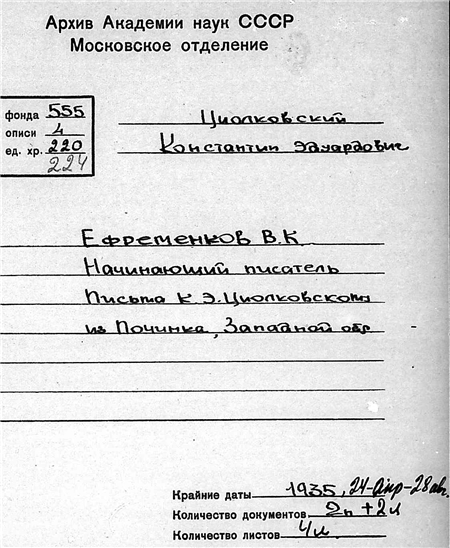 Архив Академии наук СССР
Московское отделение
фонда 555
описи 4
ед. хр. 220
224
Циолковский
Константин Эдуардович
Ефременков В.К
Начинающий писатель
Письма К.Э.Циолковскому
из Починка, Западной обл
Крайние даты 1935, 24-апр-28 авг.
Количество документов 2п+2л
Количество листов 4л